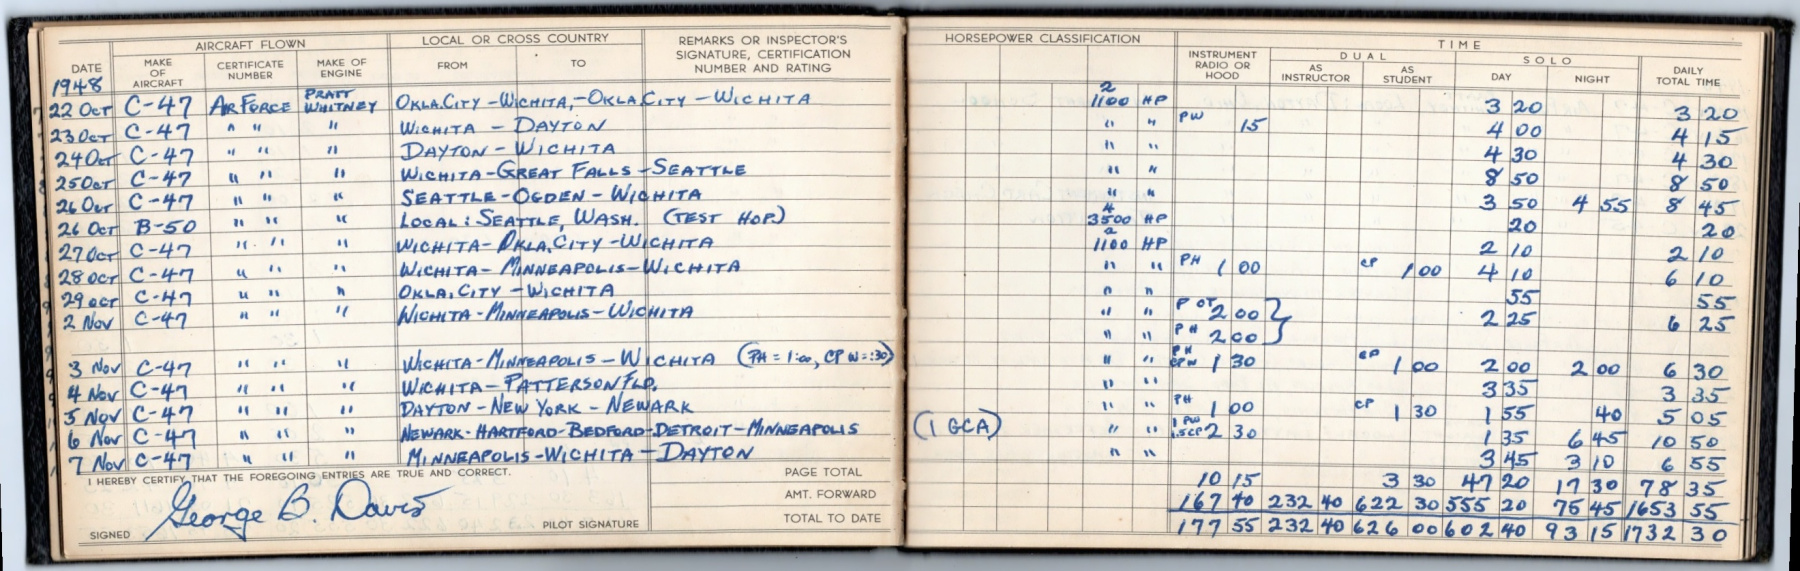 AIRCRAFT FLOWN LOCAL OR CROSS COUNTRY REMARKS OR INSPECTOR'S SIGNATURE, CERTIFICATION NUMBER AND RATING HORSEPOWER CLASSIFICATION TIME
DATE MAKE OF AIRCRAFT CERTIFICATE NUMBER MAKE OF ENGINE FROM TO INSTRUMENT RADIO OR HOOD DUAL AS INSTRUCTOR AS STUDENT SOLO DAY NIGHT DAILY TOTAL TIME
1948
22 Oct C-47 AIR FORCE PRATT WHITNEY OKLA. CITY - WICHITA, - OKLA. CITY - WICHITA 2 1100 HP 3 20 3 20
23 Oct C-47 " " " WICHITA - DAYTON " " PW 15 4 00 4 15
24 Oct C-47 " " " DAYTON - WICHITA " " 4 30 4 30
25 Oct C-47 " " " WICHITA - GREAT FALLS - SEATTLE " " 8 50 8 50
26 Oct C-47 " " " SEATTLE - OGDEN - WICHITA " " 3 50 4 55 8 45
26 Oct B-50 " " " LOCAL: SEATTLE, WASH. (TEST HOP.) 4 3500 HP 20 20
27 Oct C-47 " " " WICHITA - OKLA. CITY - WICHITA 2 1100 HP 2 10 2 10
28 Oct C-47 " " " WICHITA - MINNEAPOLIS - WICHITA " " PH 1 00 CP 1 00 4 10 6 10
29 Oct C-47 " " " OKLA. CITY - WICHITA " " 55 55
2 Nov C-47 " " " WICHITA - MINNEAPOLIS - WICHITA " " P OT 2 00 } 2 25 6 25
" " PH 2 00
3 Nov C-47 " " " WICHITA - MINNEAPOLIS - WICHITA (PH = 1:00, CPW = :30) " " PH CPW 1 30 CP 1 00 2 00 2 00 6 30
4 Nov C-47 " " " WICHITA - PATTERSON FLD. " " 3 35 3 35
5 Nov C-47 " " " DAYTON - NEW YORK - NEWARK " " PH 1 00 CP 1 30 1 55 40 5 05
6 Nov C-47 " " " NEWARK - HARTFORD - BEDFORD - DETROIT - MINNEAPOLIS (1 GCA) " " 1 PW 1.5 CP 2 30 1 35 6 45 10 50
7 Nov C-47 " " " MINNEAPOLIS - WICHITA - DAYTON " " 3 45 3 10 6 55
I HEREBY CERTIFY THAT THE FOREGOING ENTRIES ARE TRUE AND CORRECT. PAGE TOTAL 10 15 3 30 47 20 17 30 78 35
George B. Davis AMT. FORWARD 167 40 232 40 622 30 555 20 75 45 1653 55
SIGNED PILOT SIGNATURE TOTAL TO DATE 177 55 232 40 626 00 602 40 93 15 1732 30